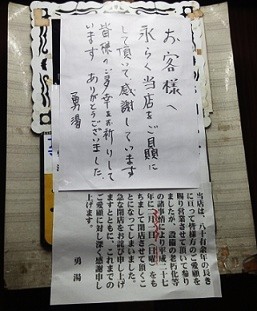 お客様へ
永らく当店をご贔屓に
して頂いて感謝しています
皆様のご多幸をお祈りして
います ありがとうございました
勇湯
当店は、八十有余年の長き
に亘って皆様方のご愛顧を
賜り営業させて頂いて参り
ましたが、設備の老朽化等
の諸事情により平成二十七
年 月 日(日曜)をも
ちまして閉店させて頂くこ
とになってしまいました。
急な閉店をお詫び申し上げ
ますとともに、これまでの
ご愛顧に対し深く感謝申し
上げます
勇 湯